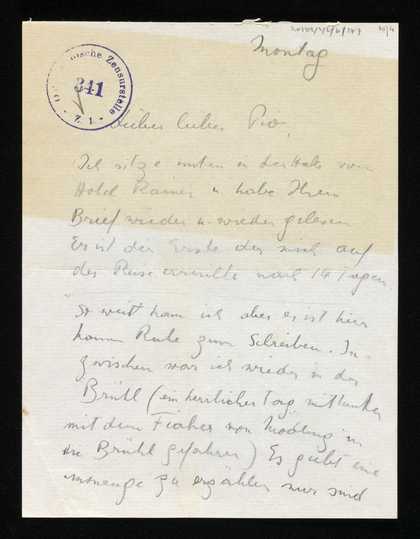 Montag
Österreichische Zensurstelle
341
Z. 1.
Lieber lieber Pio,
Ich sitze unten in der Halle vom
Hotel Rainer u habe Ihren
Brief wieder u wieder gelesen
Er ist der Erste der mich auf
der Reise erreichte nach 14 Tagen
So weit kam ich aber es ist hier
kaum Ruhe zum Schreiben. In-
zwischen war ich wieder in der
Brühl (ein herrlicher Tag mit
mit dem Fiaker von Mödling in
die Brühl gefahren) Es giebt eine
menge zu erzählen nur sind